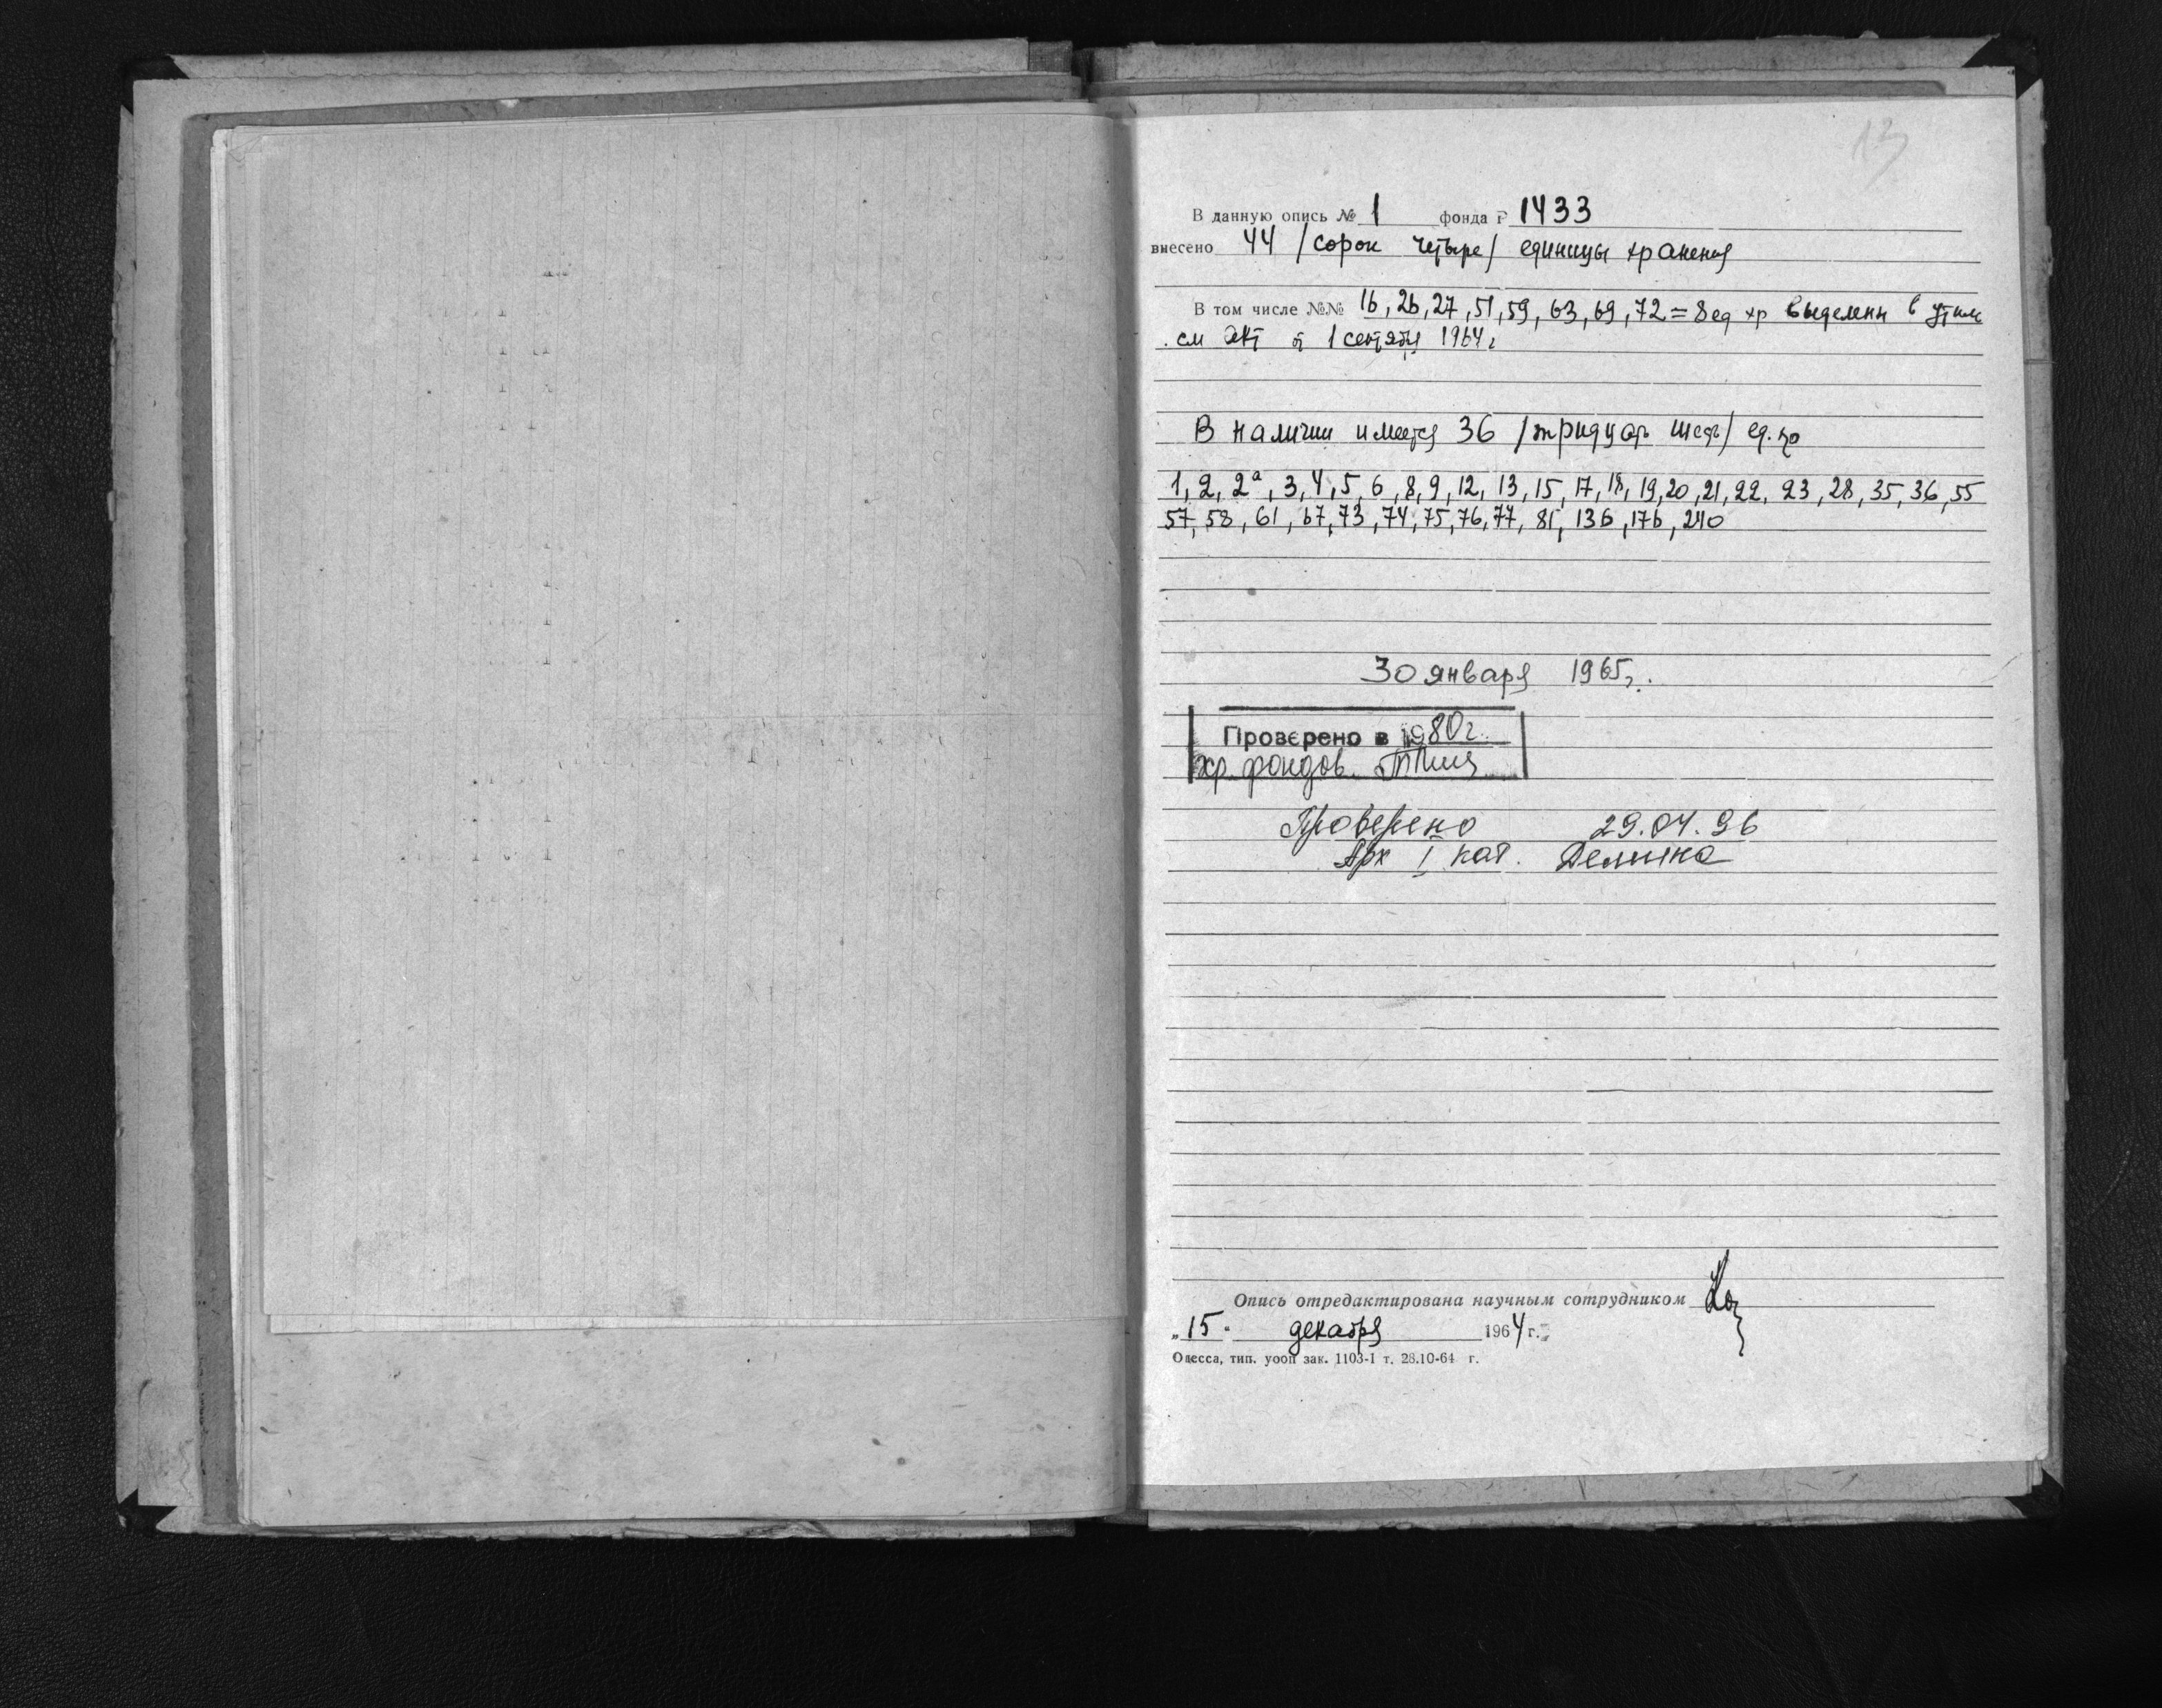 13
В данную опись № 1 фонда Р 1433
внесено 44 /сорок четыре/ единицы хранения
В том числе №№ 16, 26, 27, 51, 59, 63, 69, 72 = 8 ед хр выделены в утиль
см акт от 1 сентября 1964 г
В наличии имеется 36 /тридцать шесть/ ед. хр
1, 2, 2а, 3, 4, 5, 6, 8, 9, 12, 13, 15, 17, 18, 19, 20, 21, 22, 23, 28, 35, 36, 55
57, 58, 61, 67, 73, 74, 75, 76, 77, 81, 136, 176, 240
30 января 1965 г.
Проверено в 1980 г.
хр. фондов
Проверено 29.04.96
Арх I кат. Демина
Опись отредактирована научным сотрудником
„15" декабря 1964 г.
Одесса, тип. уооп зак. 1103-1 т. 28.10-64 г.